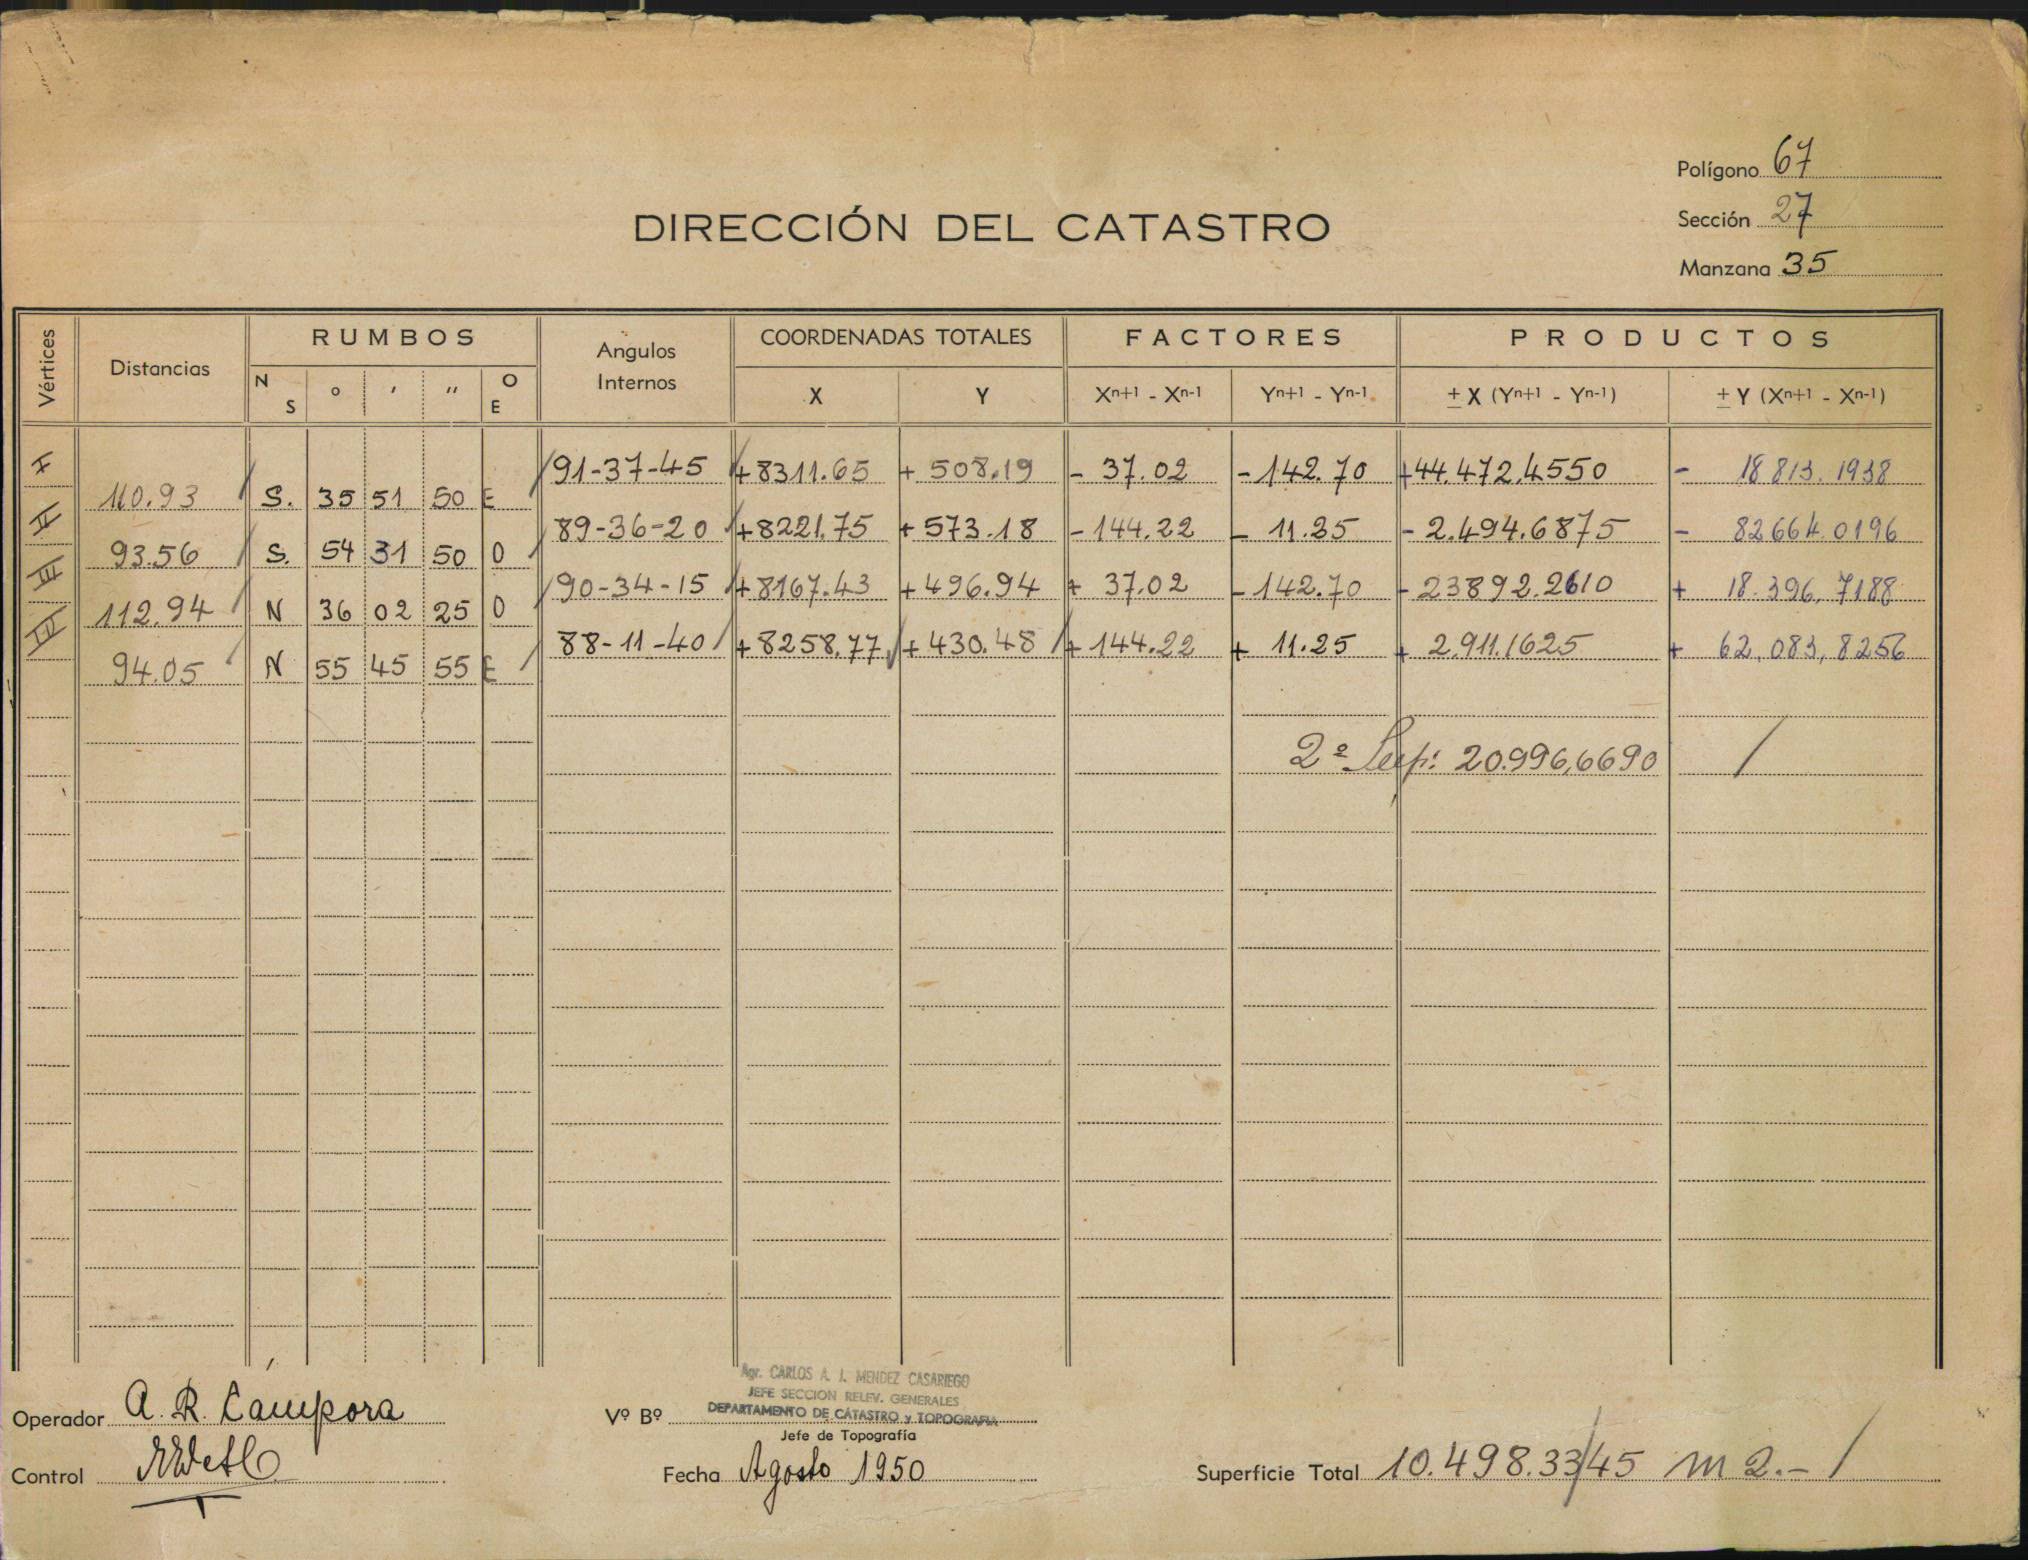 Polígono 67
Sección 27
Manzana 35
DIRECCIÓN DEL CATASTRO
Vértices Distancias RUMBOS Angulos Internos COORDENADAS TOTALES FACTORES PRODUCTOS
N S ° ′ ″ O E X Y Xⁿ⁺¹ - Xⁿ⁻¹ Yⁿ⁺¹ - Yⁿ⁻¹ ± X (Yⁿ⁺¹ - Yⁿ⁻¹) ± Y (Xⁿ⁺¹ - Xⁿ⁻¹)
I 91-37-45 +8311.65 + 508.19 - 37.02 -142.70 +44.472,4550 - 18 813. 1938
110.93 S. 35 51 50 E
II 89-36-20 +8221.75 +573.18 -144.22 - 11.25 - 2.494.6875 - 82664.0196
93.56 S. 54 31 50 O
III 90-34-15 +8167.43 +496.94 + 37.02 -142.70 -23892.2610 + 18.396,7188
112.94 N 36 02 25 O
IV 88-11-40 +8258.77 +430.48 +144.22 + 11.25 + 2.911.1625 + 62,083,8256
94.05 N 55 45 55 E
2ª Sup: 20.996,6690 /
Agr. CARLOS A. J. MENDEZ CASARIEGO
JEFE SECCION RELEV. GENERALES
DEPARTAMENTO DE CATASTRO y TOPOGRAFIA
Operador A. R. Campora Vº Bº
Jefe de Topografía
Control Fecha Agosto 1950 Superficie Total 10.498.33/45 m 2.- /